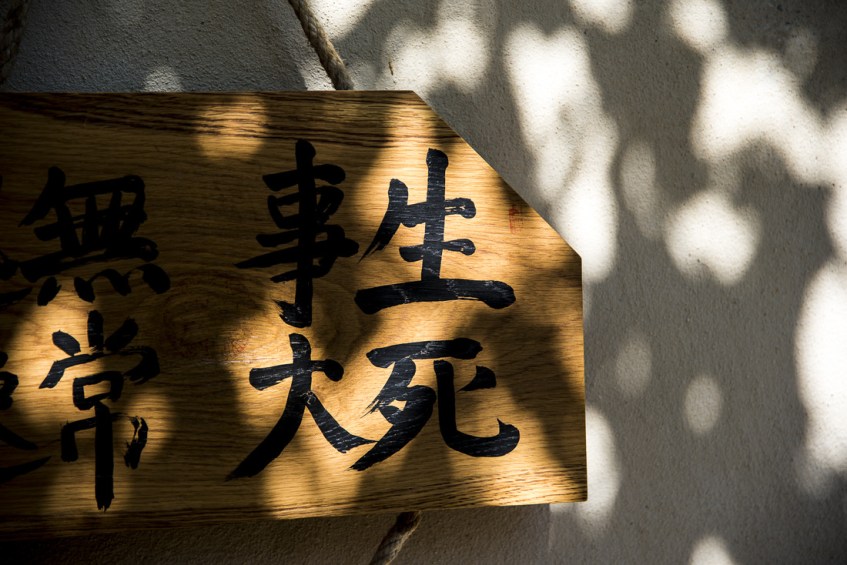 生死
事大
無常